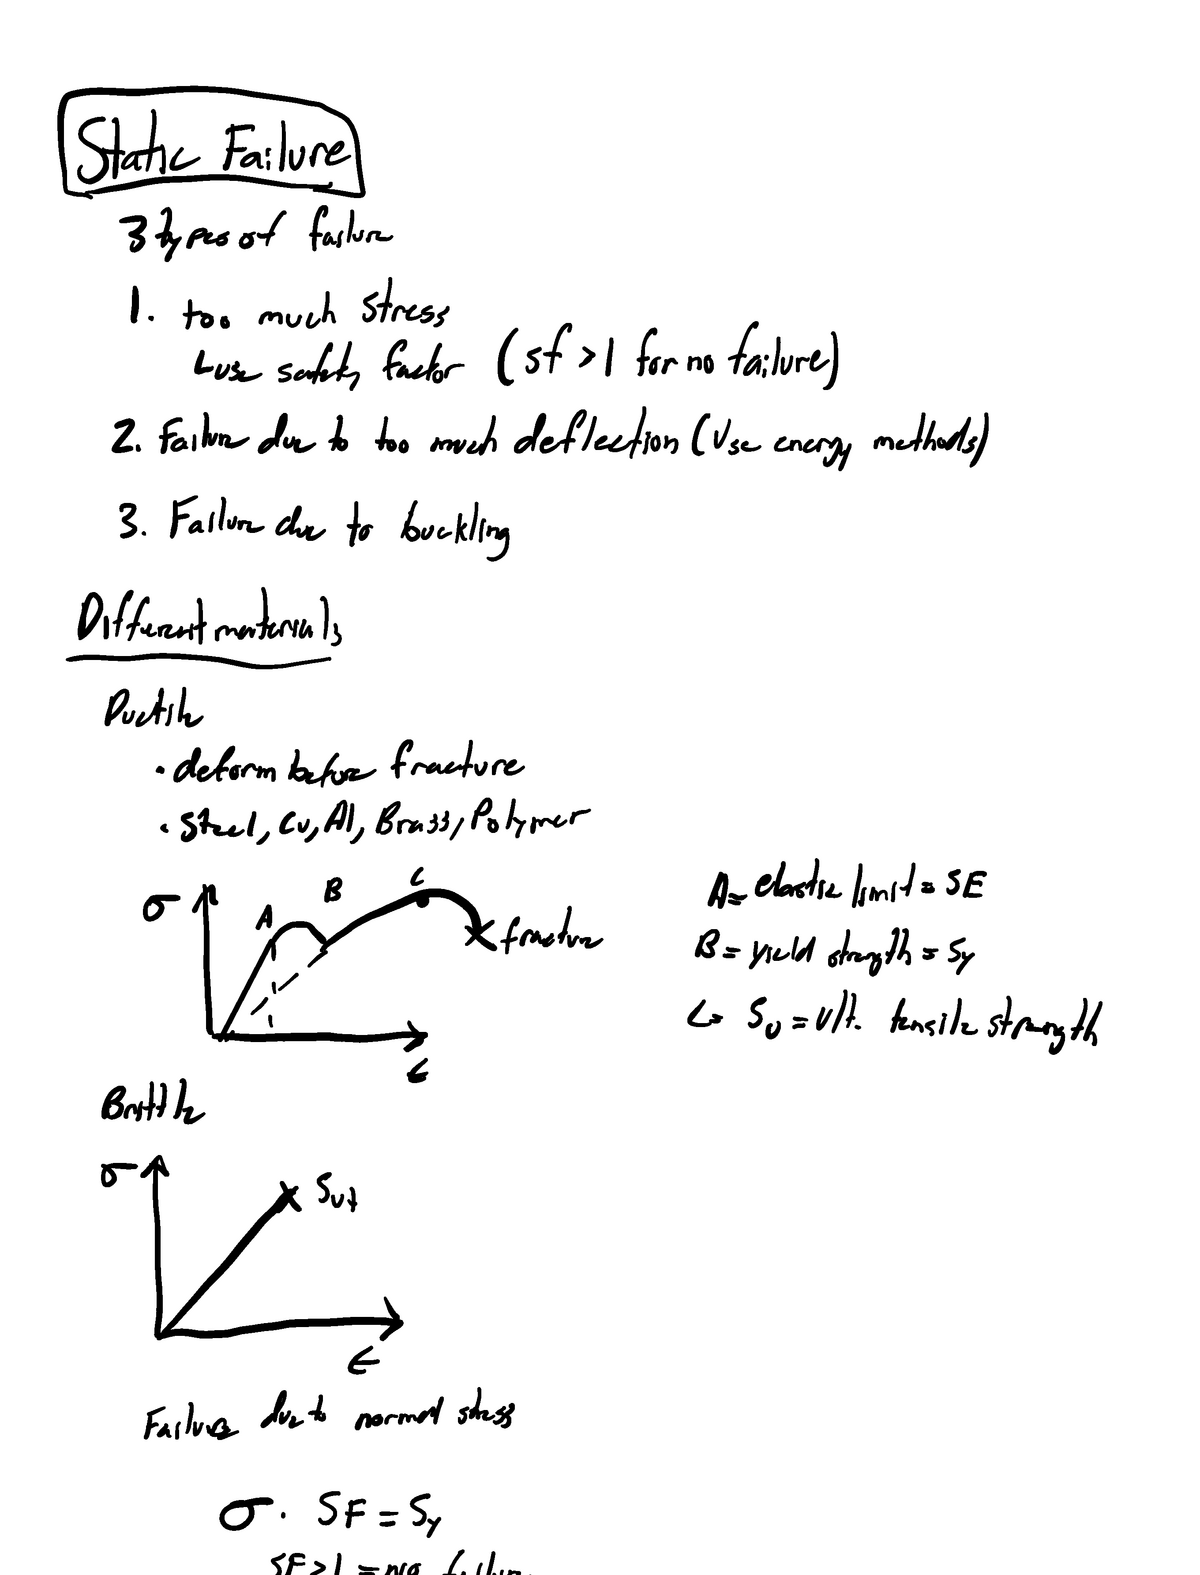 Static Failure
3 types of failure
1. too much stress
↳use safety factor (sf >1 for no failure)
2. Failure due to too much deflection (Use energy methods)
3. Failure due to buckling
Different materials
Ductile
• deform before fracture
• Steel, Cu, Al, Brass, Polymer
σ
A
B
C
fracture
ϵ
A= elastic limit = SE
B = yield strength = Sy
C= Su = Ult. tensile strength
Brittle
σ
Sut
ϵ
Failure due to normal stress
σ · SF = Sy
SF>1 = no failure